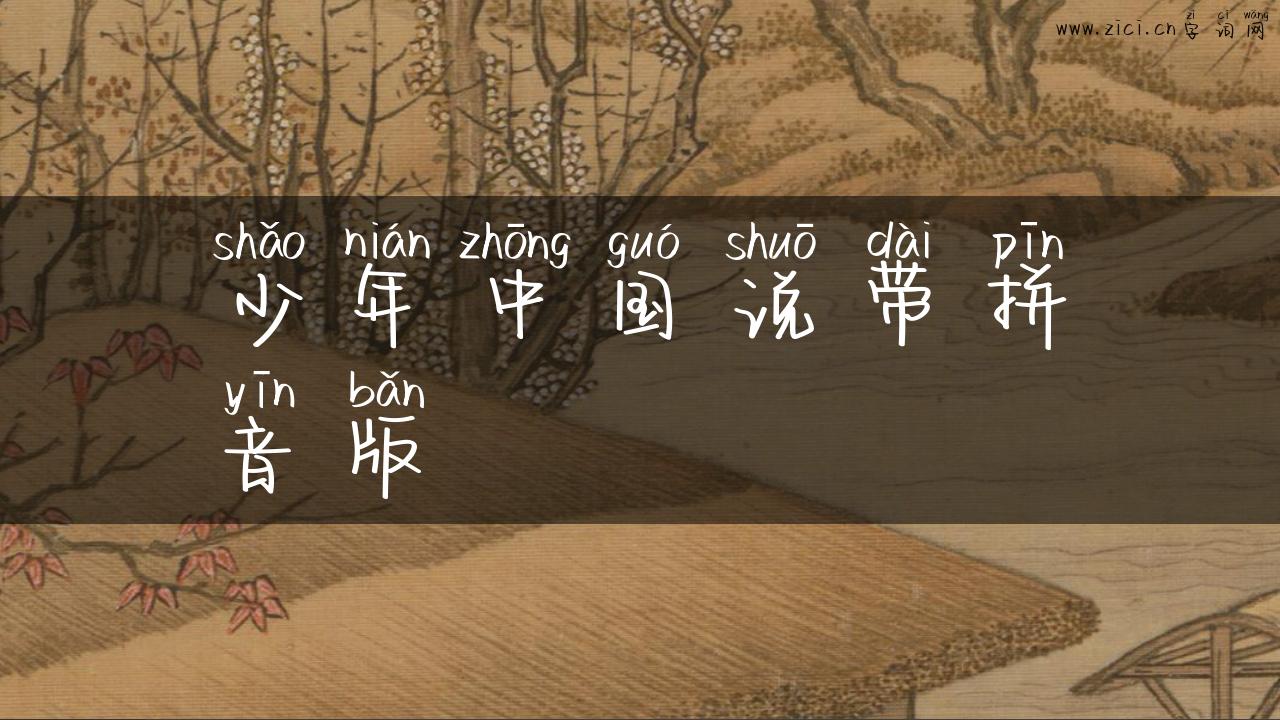 zì cí wǎng
www.zici.cn 字词网
shǎo nián zhōng guó shuō dài pīn
少年中国说带拼
yīn bǎn
音版